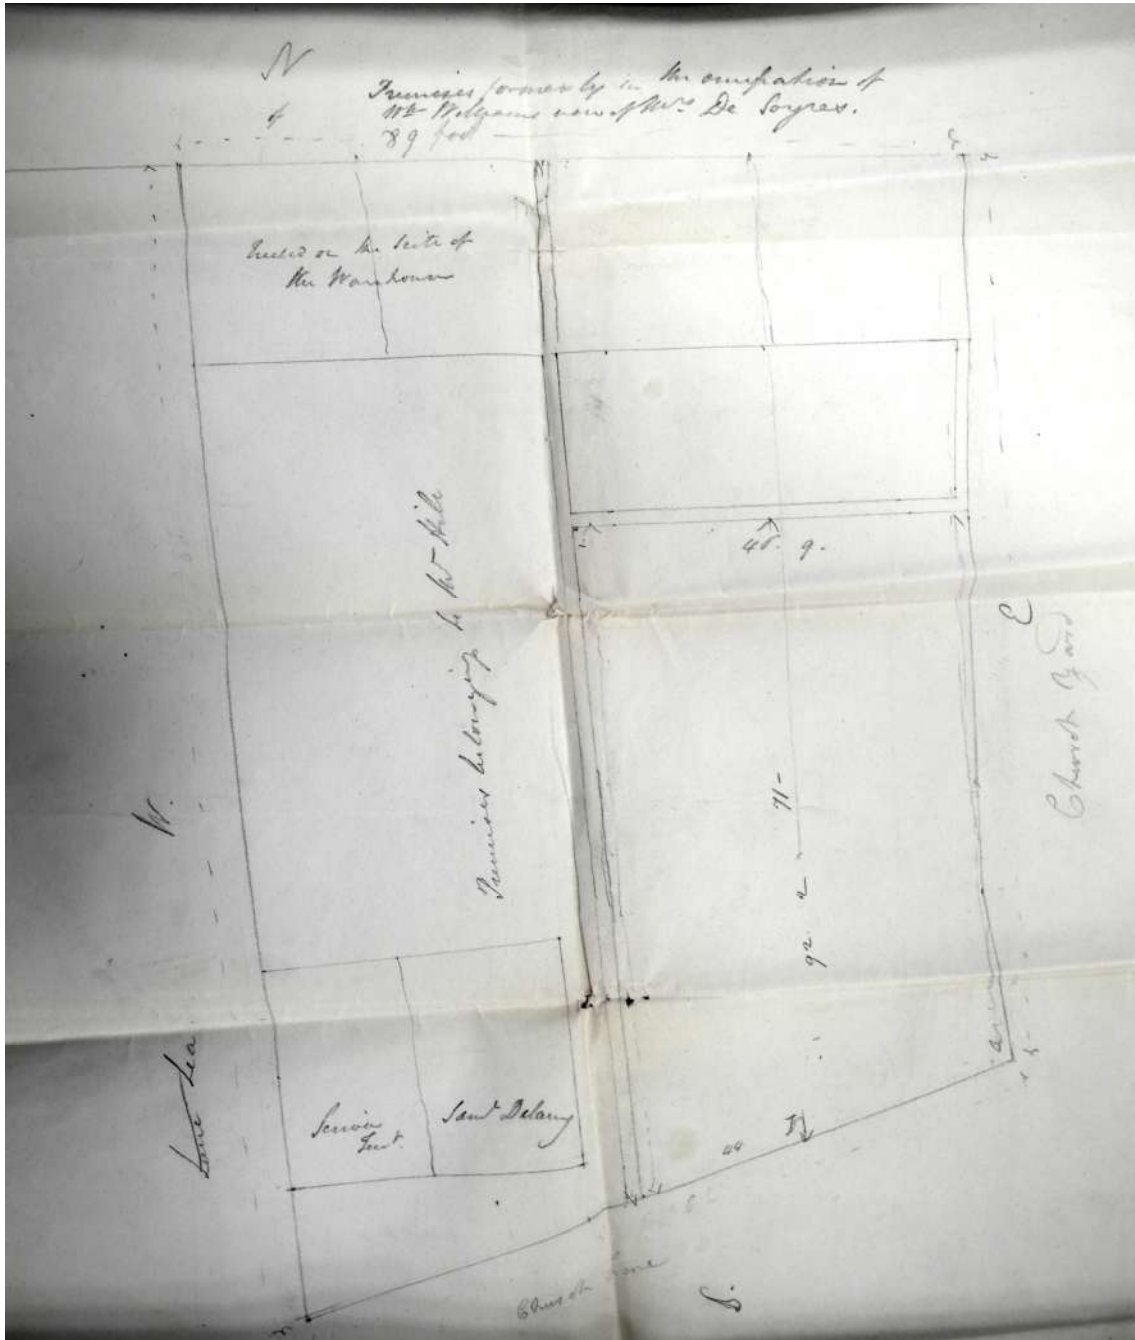 N
Premises formerly in the occupation of
Wm Williams now of Mrs De Soyres.
89 feet
on the Scite of
the Warehouse
Premises belonging to Mr Hile
48. 9.
E
Church Yard
W.
71-
92. 2
Lane Lea
Saml Delany
44
Church Lane
S.